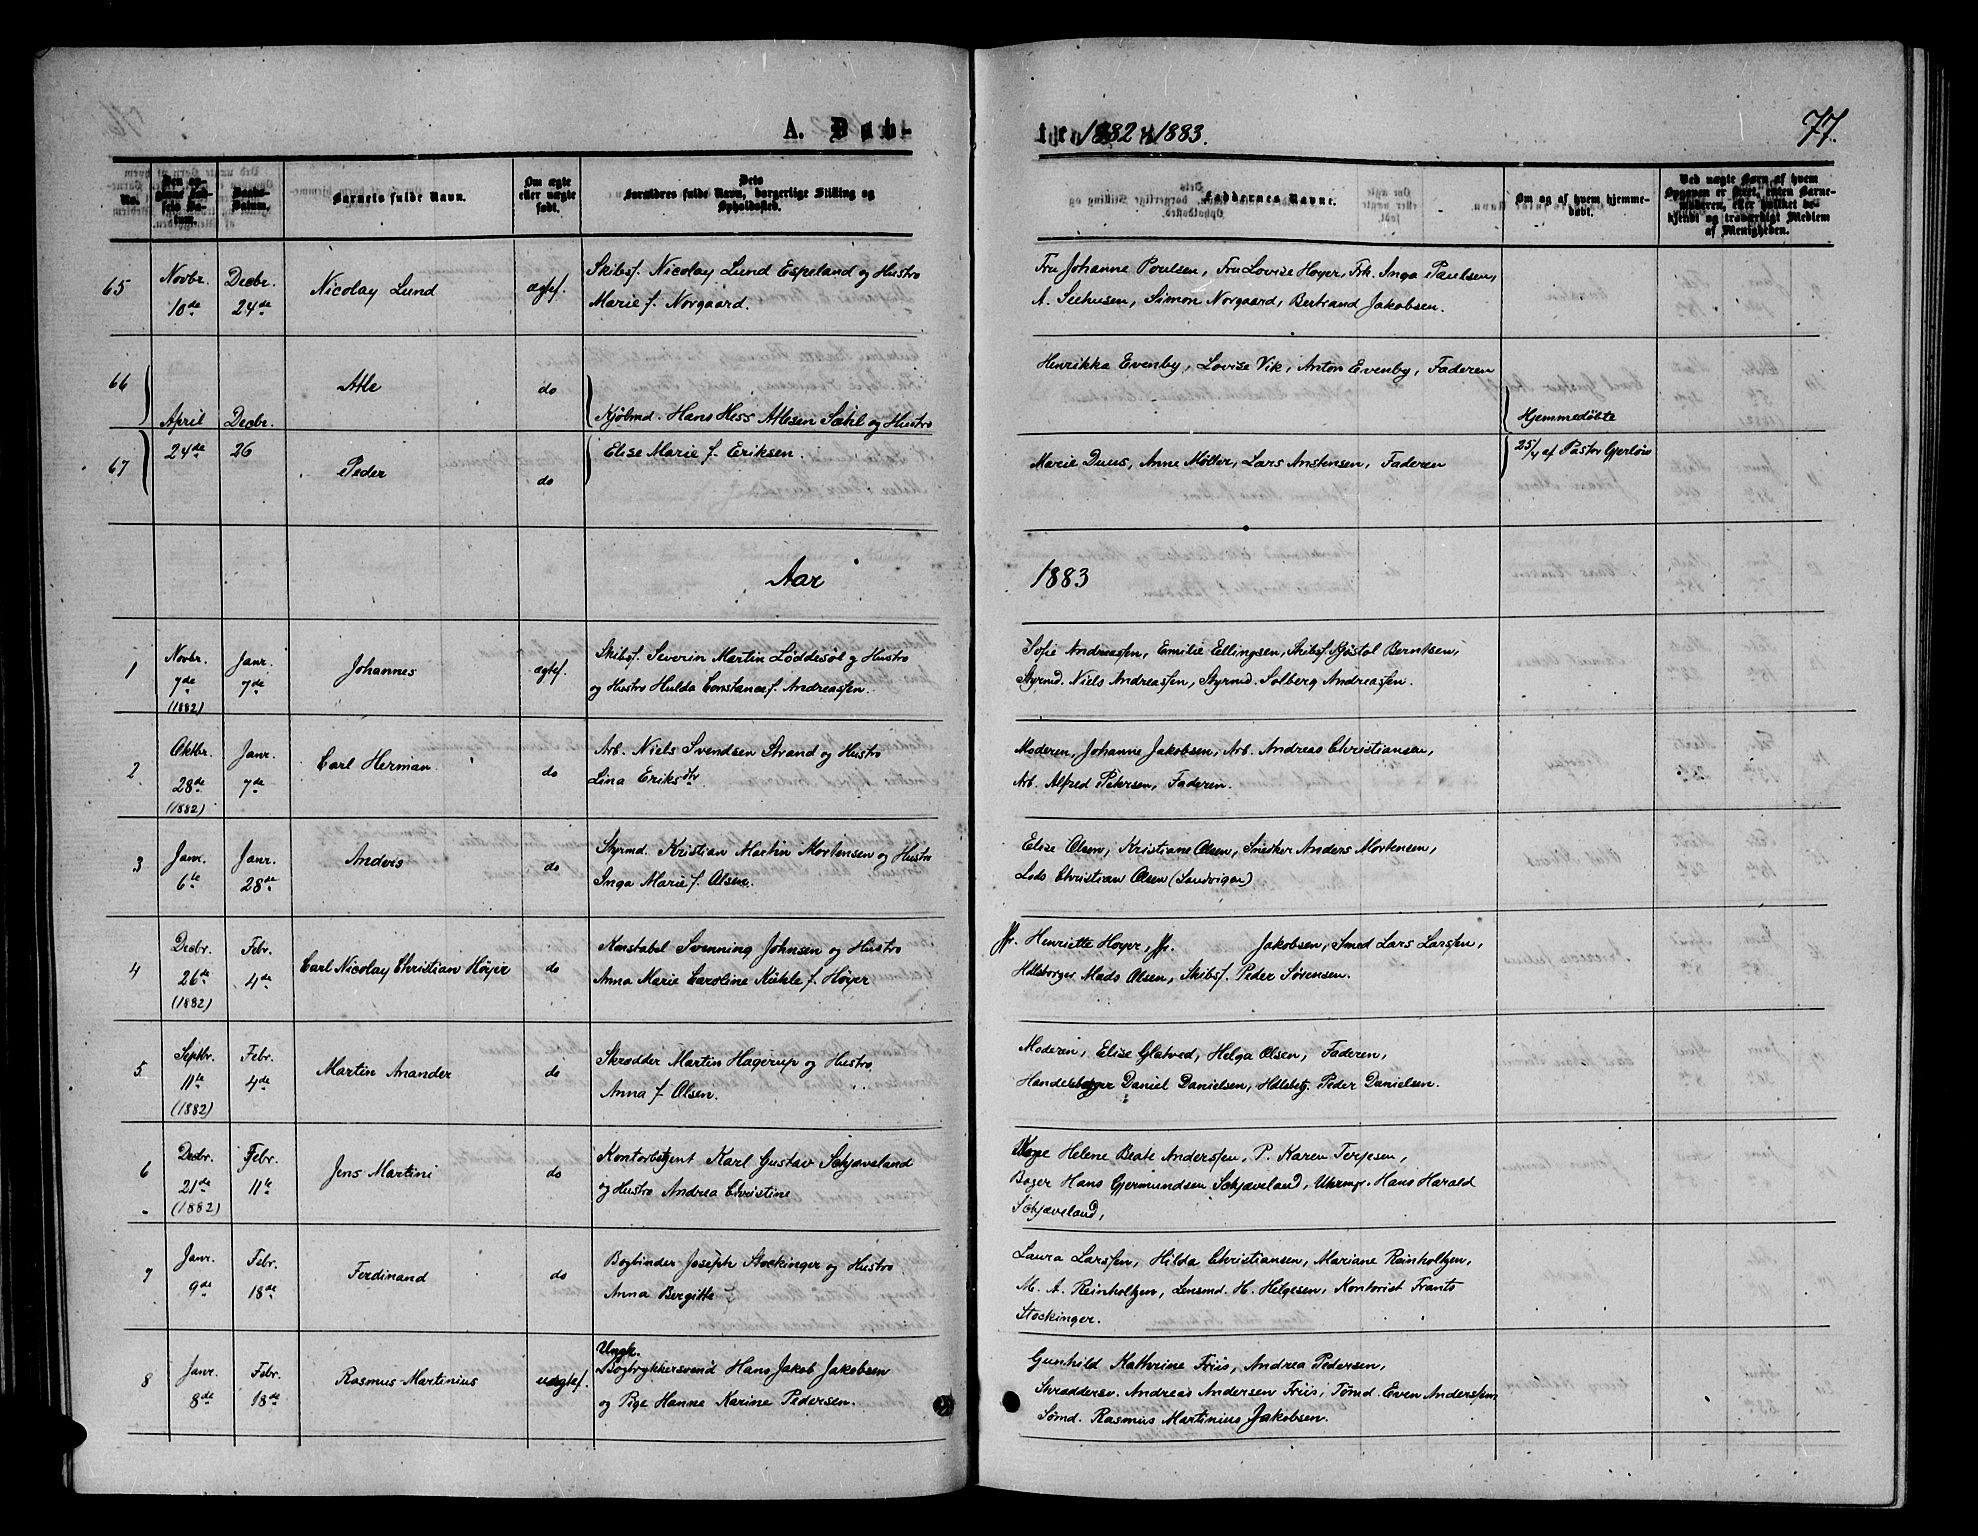 A. Døb-
te 1882 & 1883.
77.
No.
Barnets fulde Navn.
Om ægte eller uægte født.
Dets Forældres fulde Navn, borgerlige Stilling og Opholdssted.
Faddernes Navne.
Om og af hvem hjemme-
døbt.
Ved uægte Børn af hvem Opgaven er skeet, enten Barne-
moderen, eller hvilket be-
kjendt og troværdigt Medlem af Menigheden.
65
Novbr. 10de
Decbr. 24de
Nicolay Lund
ægtef.
Skibsf. Nicolay Lund Espeland og Hustro
Marie f. Norgaard.
Fru Johanne Poulsen, Fru Lovise Høyer, Frk. Inga Paulsen,
A. Seehusen, Simon Norgaard, Bertrand Jakobsen.
66
Atle
do
Henrikka Evenby, Lovise Vik, Anton Evenby, Faderen
April 24de
Decbr. 26
Kjøbmd. Hans Hess Atlesen Sæhl og Hustro
Elise Marie f. Eriksen.
Hjemmedøbte
25/4 af Pastor Gjerløw
67
Peder
do
Marie Duus, Anne Møller, Lars Anstensen, Faderen
Aar
1883
1
Novbr. 7de (1882)
Janr. 7de
Johannes
ægtef.
Skibsf. Severin Martin Løddesøl og Hustro
og Hustro Hulda Constance f. Andreassen.
Sofie Andreassen, Emilie Ellingsen, Skibsf. Kjøstol Berntsen,
Styrmd. Niels Andreassen, Styrmd. Solberg Andreassen.
2
Oktbr. 28de (1882)
Janr. 7de
Carl Herman
do
Arb. Niels Svendsen Strand og Hustro
Lina Eriksdtr
Moderen, Johanne Jakobsen, Arb. Andreas Christiansen,
Arb. Alfred Petersen, Faderen.
3
Janr. 6te
Janr. 28de
Anders
do
Styrmd. Kristian Martin Mortensen og Hustro
Inga Marie f. Olsen.
Elise Olsen, Kristiane Olsen, Snedker Anders Mortensen,
Lods Christian Olsen (Sandvigen)
4
Decbr. 26de (1882)
Febr. 4de
Carl Nicolay Christian Høyer
do
Konstabel Svenning Johnsen og Hustro
Anna Marie Caroline Mükle f. Høyer
Jfr. Henriette Høyer, Jfr. Jakobsen, Smed Lars Larssen,
Hdlsborger Mads Olsen, Skibsf. Peder Sørensen.
5
Septbr. 11te (1882)
Febr. 4de
Martin Anander
do
Skrædder Martin Hagerup og Hustro
Anna f. Olsen.
Moderen, Elise Glatved, Helga Olsen, Faderen,
Handelsborger Daniel Danielsen, Hdlsbetj. Peder Danielsen.
6
Decbr. 21de (1882)
Febr. 11te
Jens Martini
do
Kontorbetjent Karl Gustav Schjæveland
og Hustro Andrea Christine
Helene Beate Anderssen, P. Karen Terjesen,
Bager Hans Gjermundsen Schjæveland, Uhrmgr. Hans Harald
Schjæveland,
7
Janr. 9de
Febr. 18de
Ferdinand
do
Bogbinder Joseph Stockinger og Hustro
Anna Bergitte
Laura Larssen, Hilda Christiansen, Mariane Reinholtzen,
M. A. Reinholtzen, Lensmd. H. Helgesen, Kontorist Frants
Stockinger.
8
Janr. 8de
Febr. 18de
Rasmus Martinius
uægtef.
Ungk.
Bogtrykkersvend Hans Jakob Jakobsen
og Pige Hanne Karine Pedersen.
Gunhild Kathrine Friis, Andrea Pedersen,
Skræddersv. Andreas Andersen Friis, Tømd. Even Anderssen
Sømd. Rasmus Martinius Jakobsen.